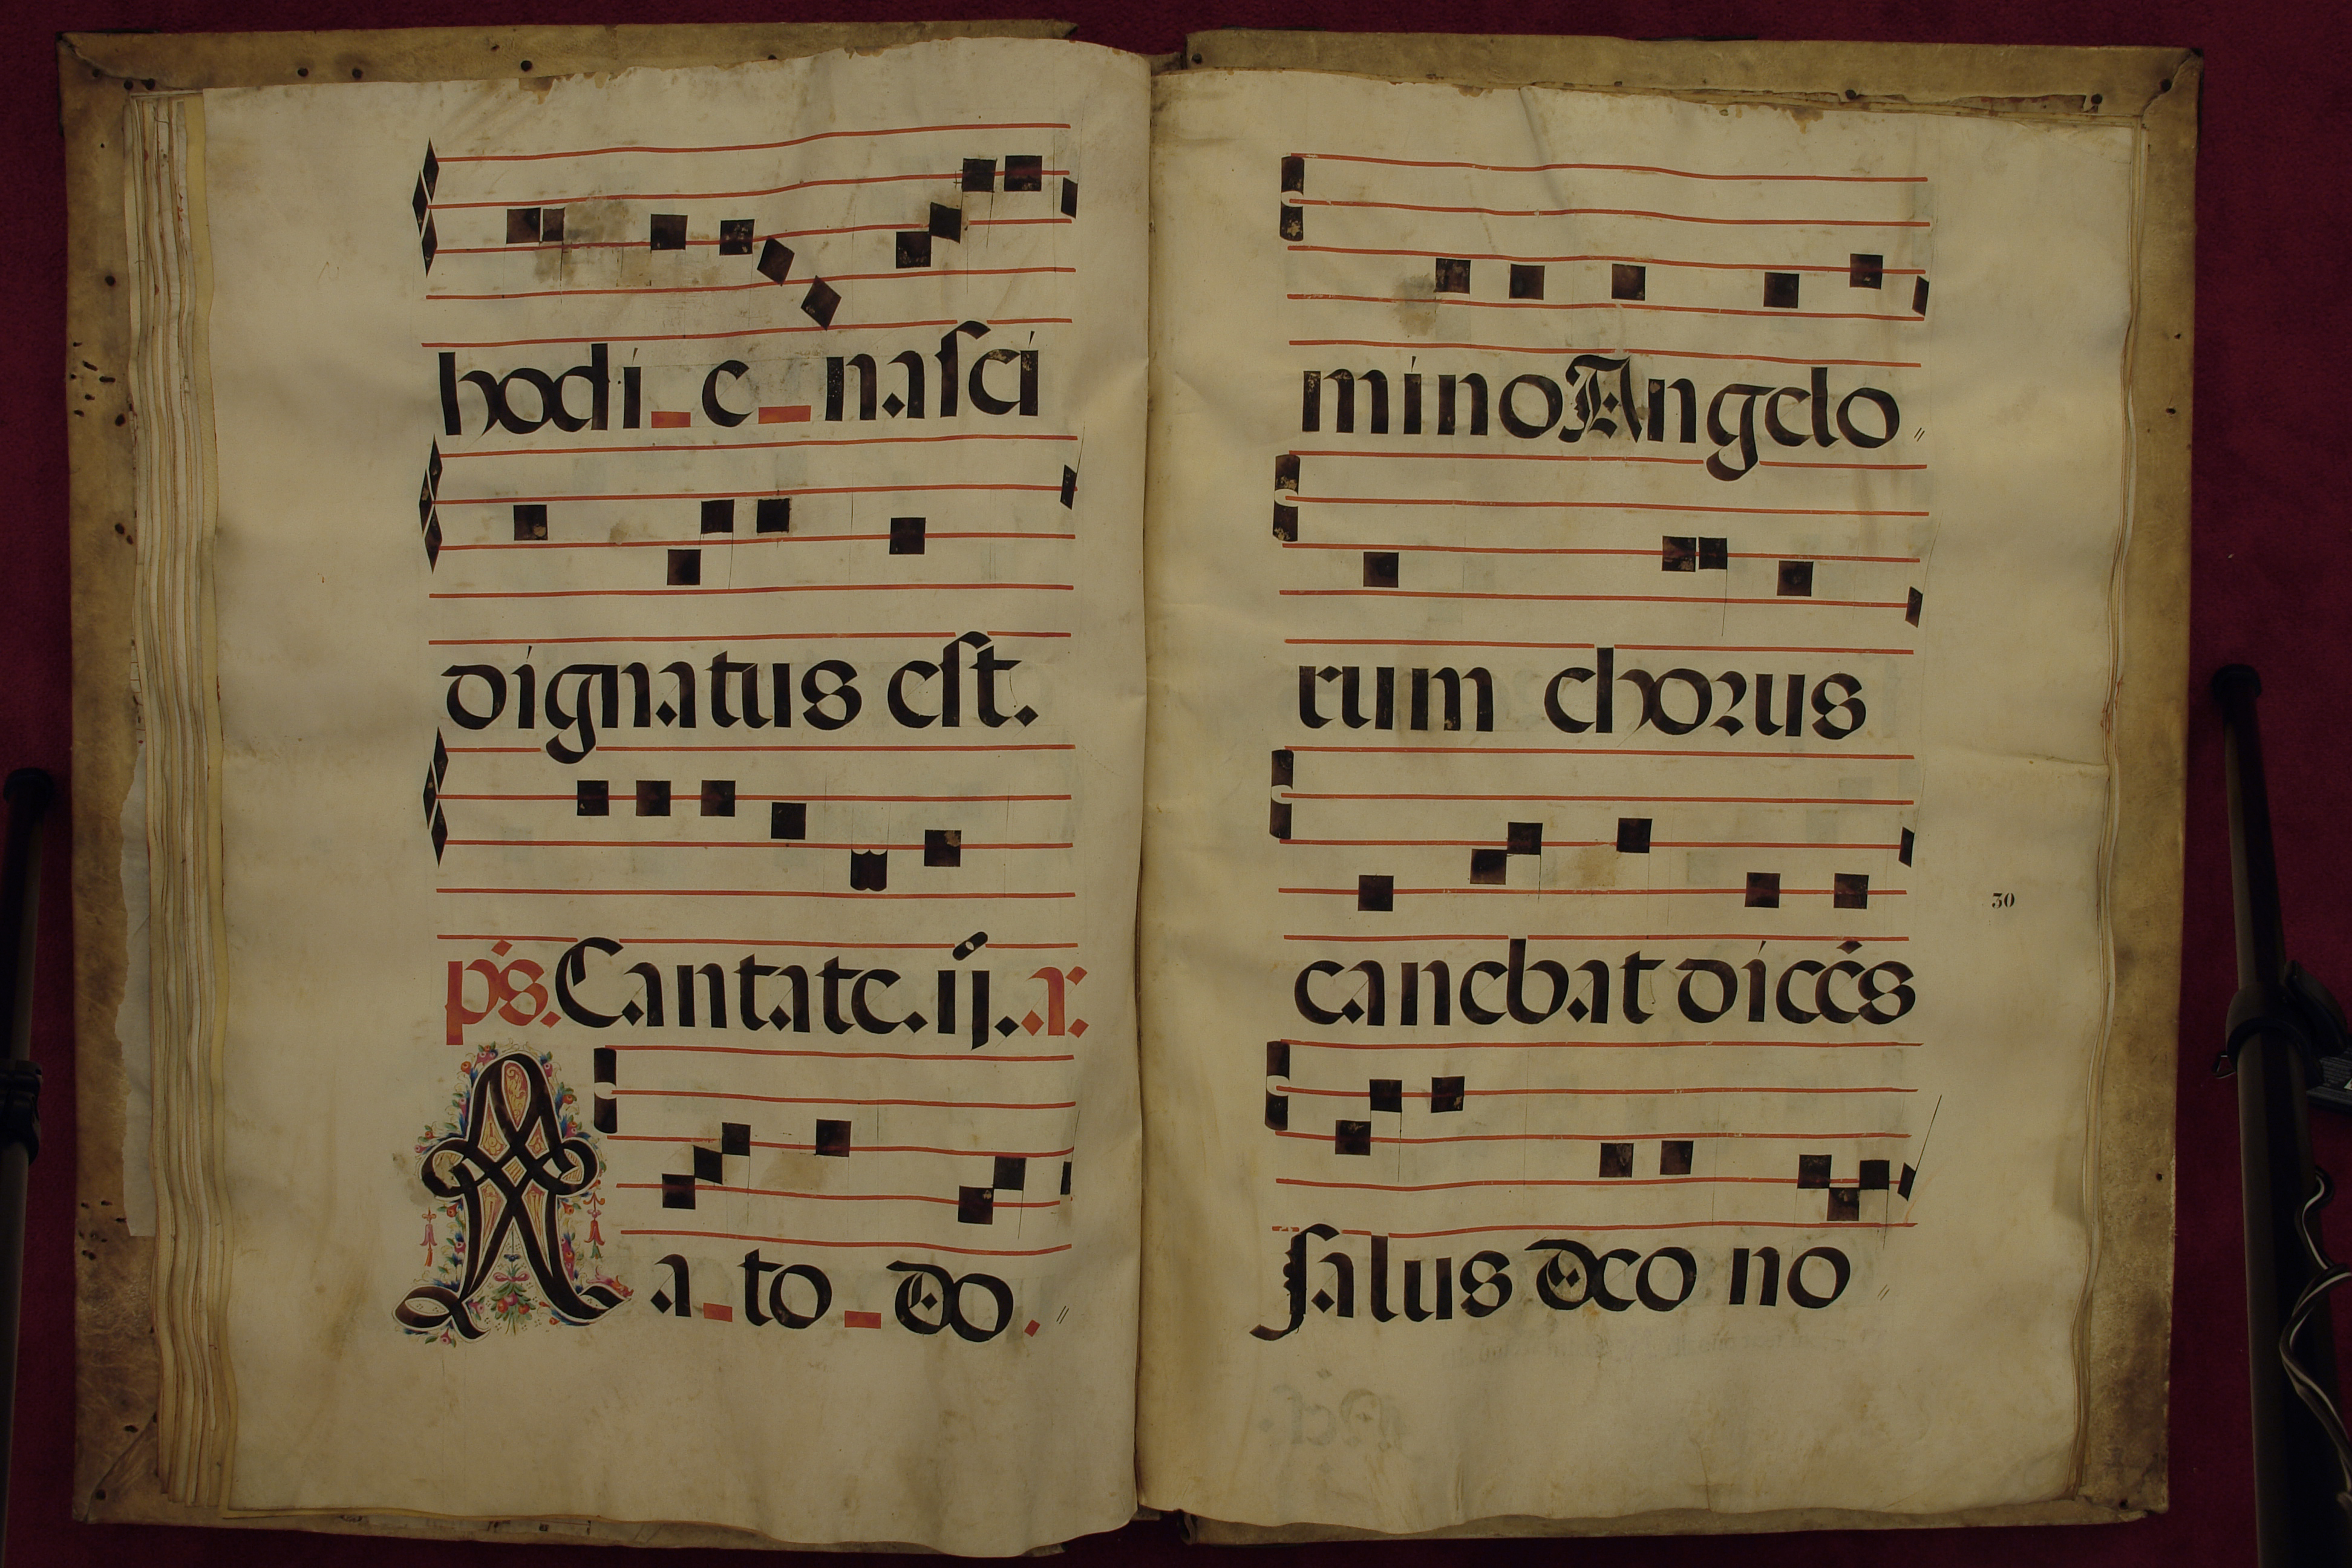 hodi_e_nasci
dignatus est.
ps. Cantate. ij. .a.r.
Nato_do.
mino Angelo
rum chorus
canebat dicẽs
30
salus deo no